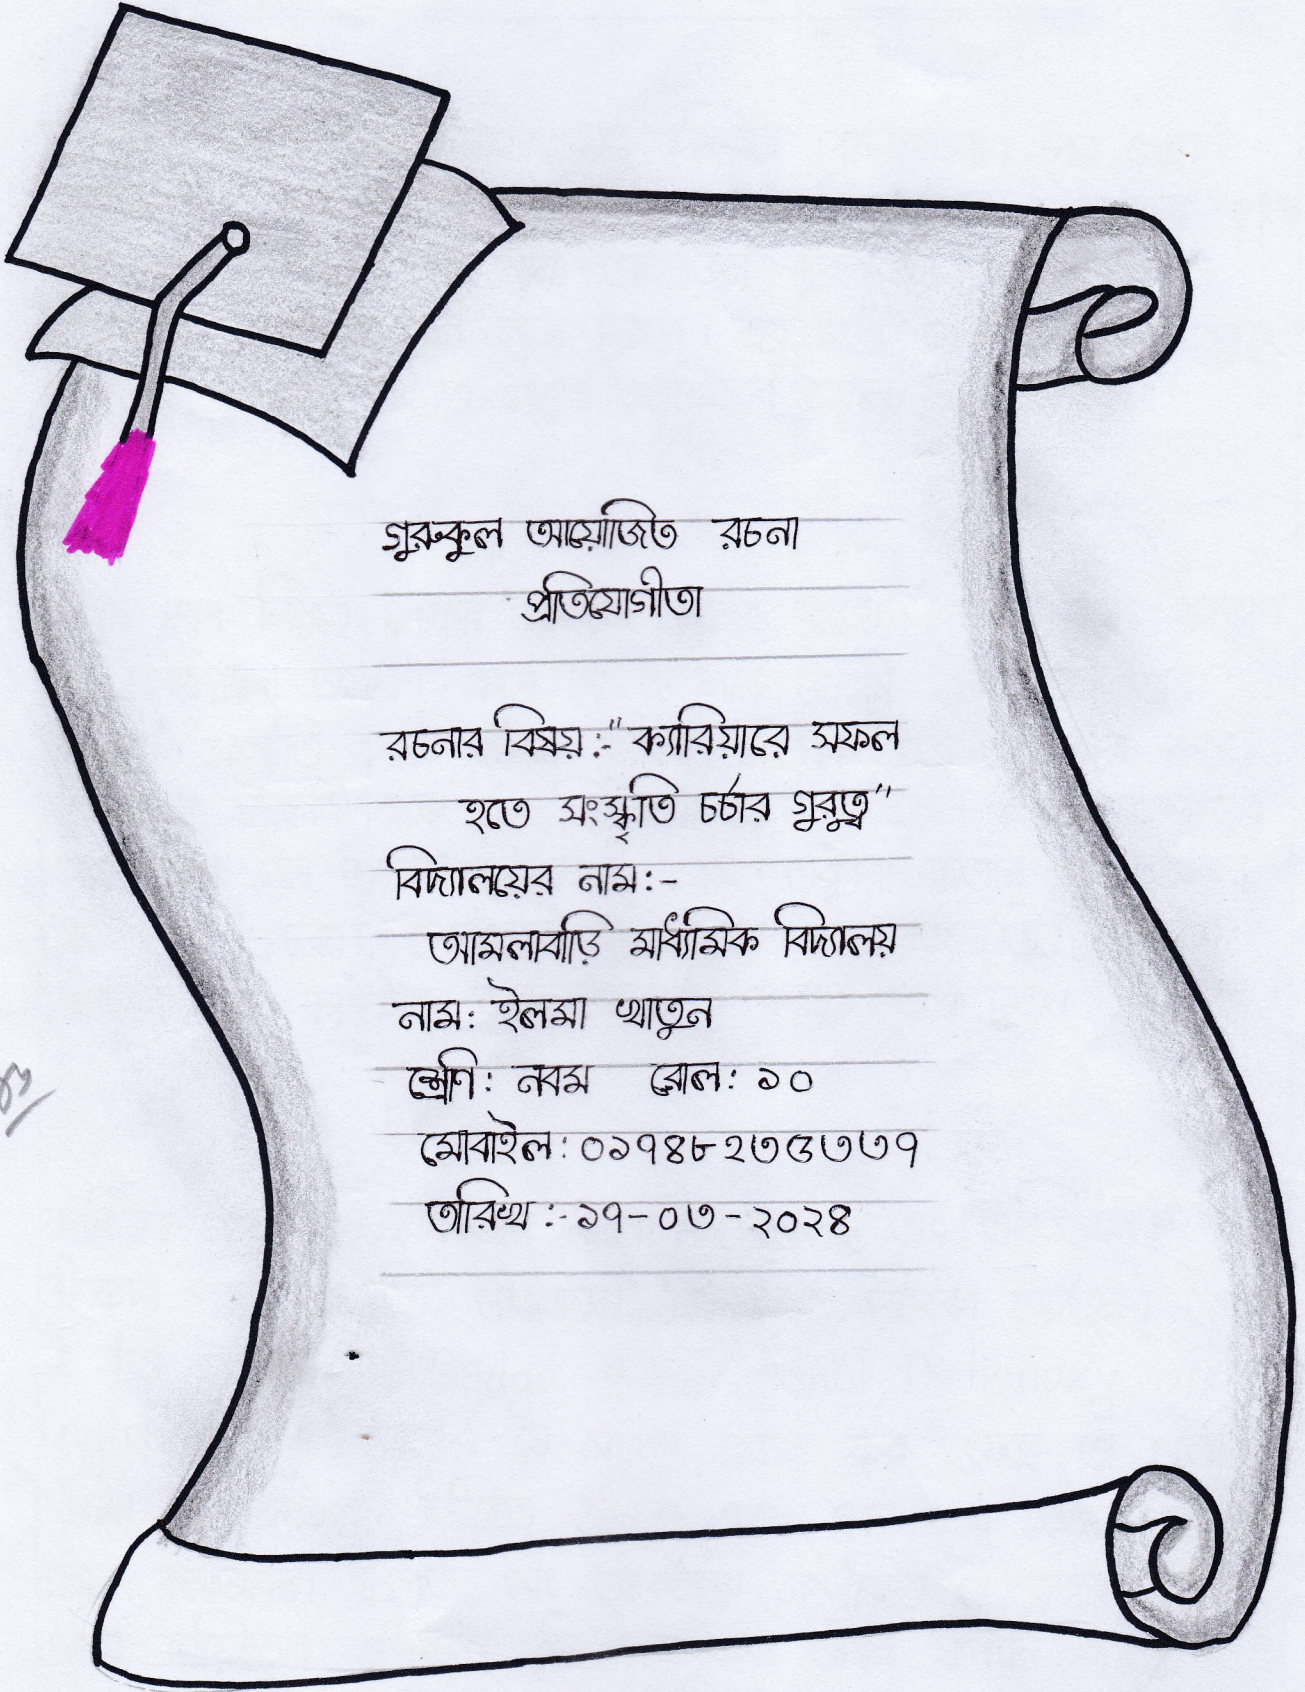 গুরুকুল আয়োজিত রচনা
প্রতিযোগীতা
রচনার বিষয়:-"ক্যারিয়ারে সফল
হতে সংস্কৃতি চর্চার গুরুত্ব"
বিদ্যালয়ের নাম:-
আমলাবাড়ি মাধ্যমিক বিদ্যালয়
নাম: ইলমা খাতুন
শ্রেণি: নবম রোল: ১০
মোবাইল: ০১৭৪৮২৩৫৩৩৭
তারিখ:-১৭-০৩-২০২৪